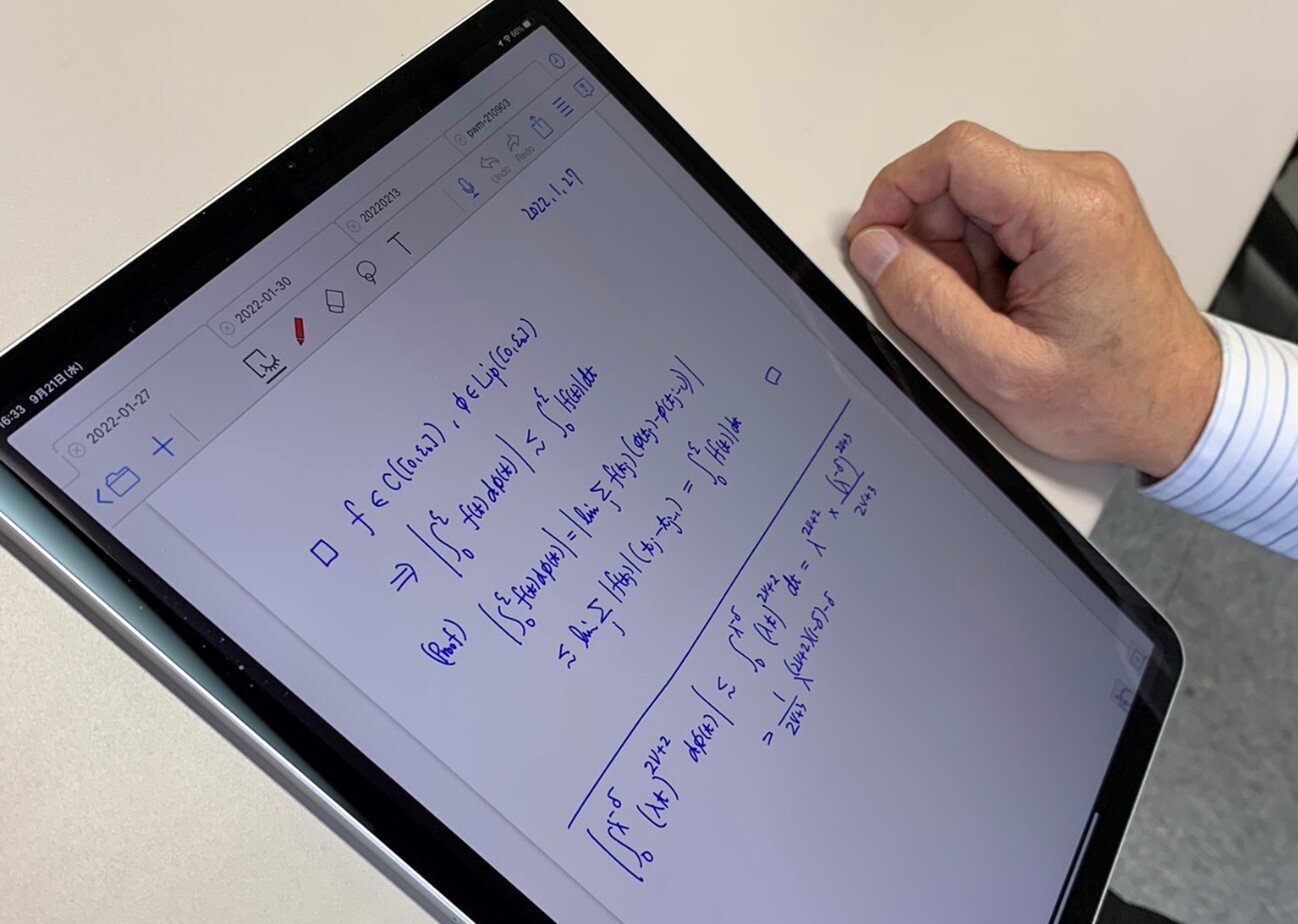 16:33 9月21日(水) 66%
2022-01-27 2022-01-30 20220213 pwm-210903
T Undo Redo
2022, 1, 27
□ f ∈ C([0,ε]), φ ∈ Lip([0,ε])
⇒ |∫₀^ε f(t) dφ(t)| ≲ ∫₀^ε |f(t)| dt
(Proof) |∫₀^ε f(t) dφ(t)| = |lim Σ_j f(t_j)(φ(t_j)-φ(t_{j-1}))|
≲ lim Σ_j |f(t_j)| (t_j - t_{j-1}) = ∫₀^ε |f(t)| dt □
|∫₀^{λ^{-δ}} (λt)^{2ν+2} dφ(t)| ≲ ∫₀^{λ^{-δ}} (λt)^{2ν+2} dt = λ^{2ν+2} × (λ^{-δ})^{2ν+3}/(2ν+3)
= 1/(2ν+3) λ^{(2ν+2)(1-δ)-δ}